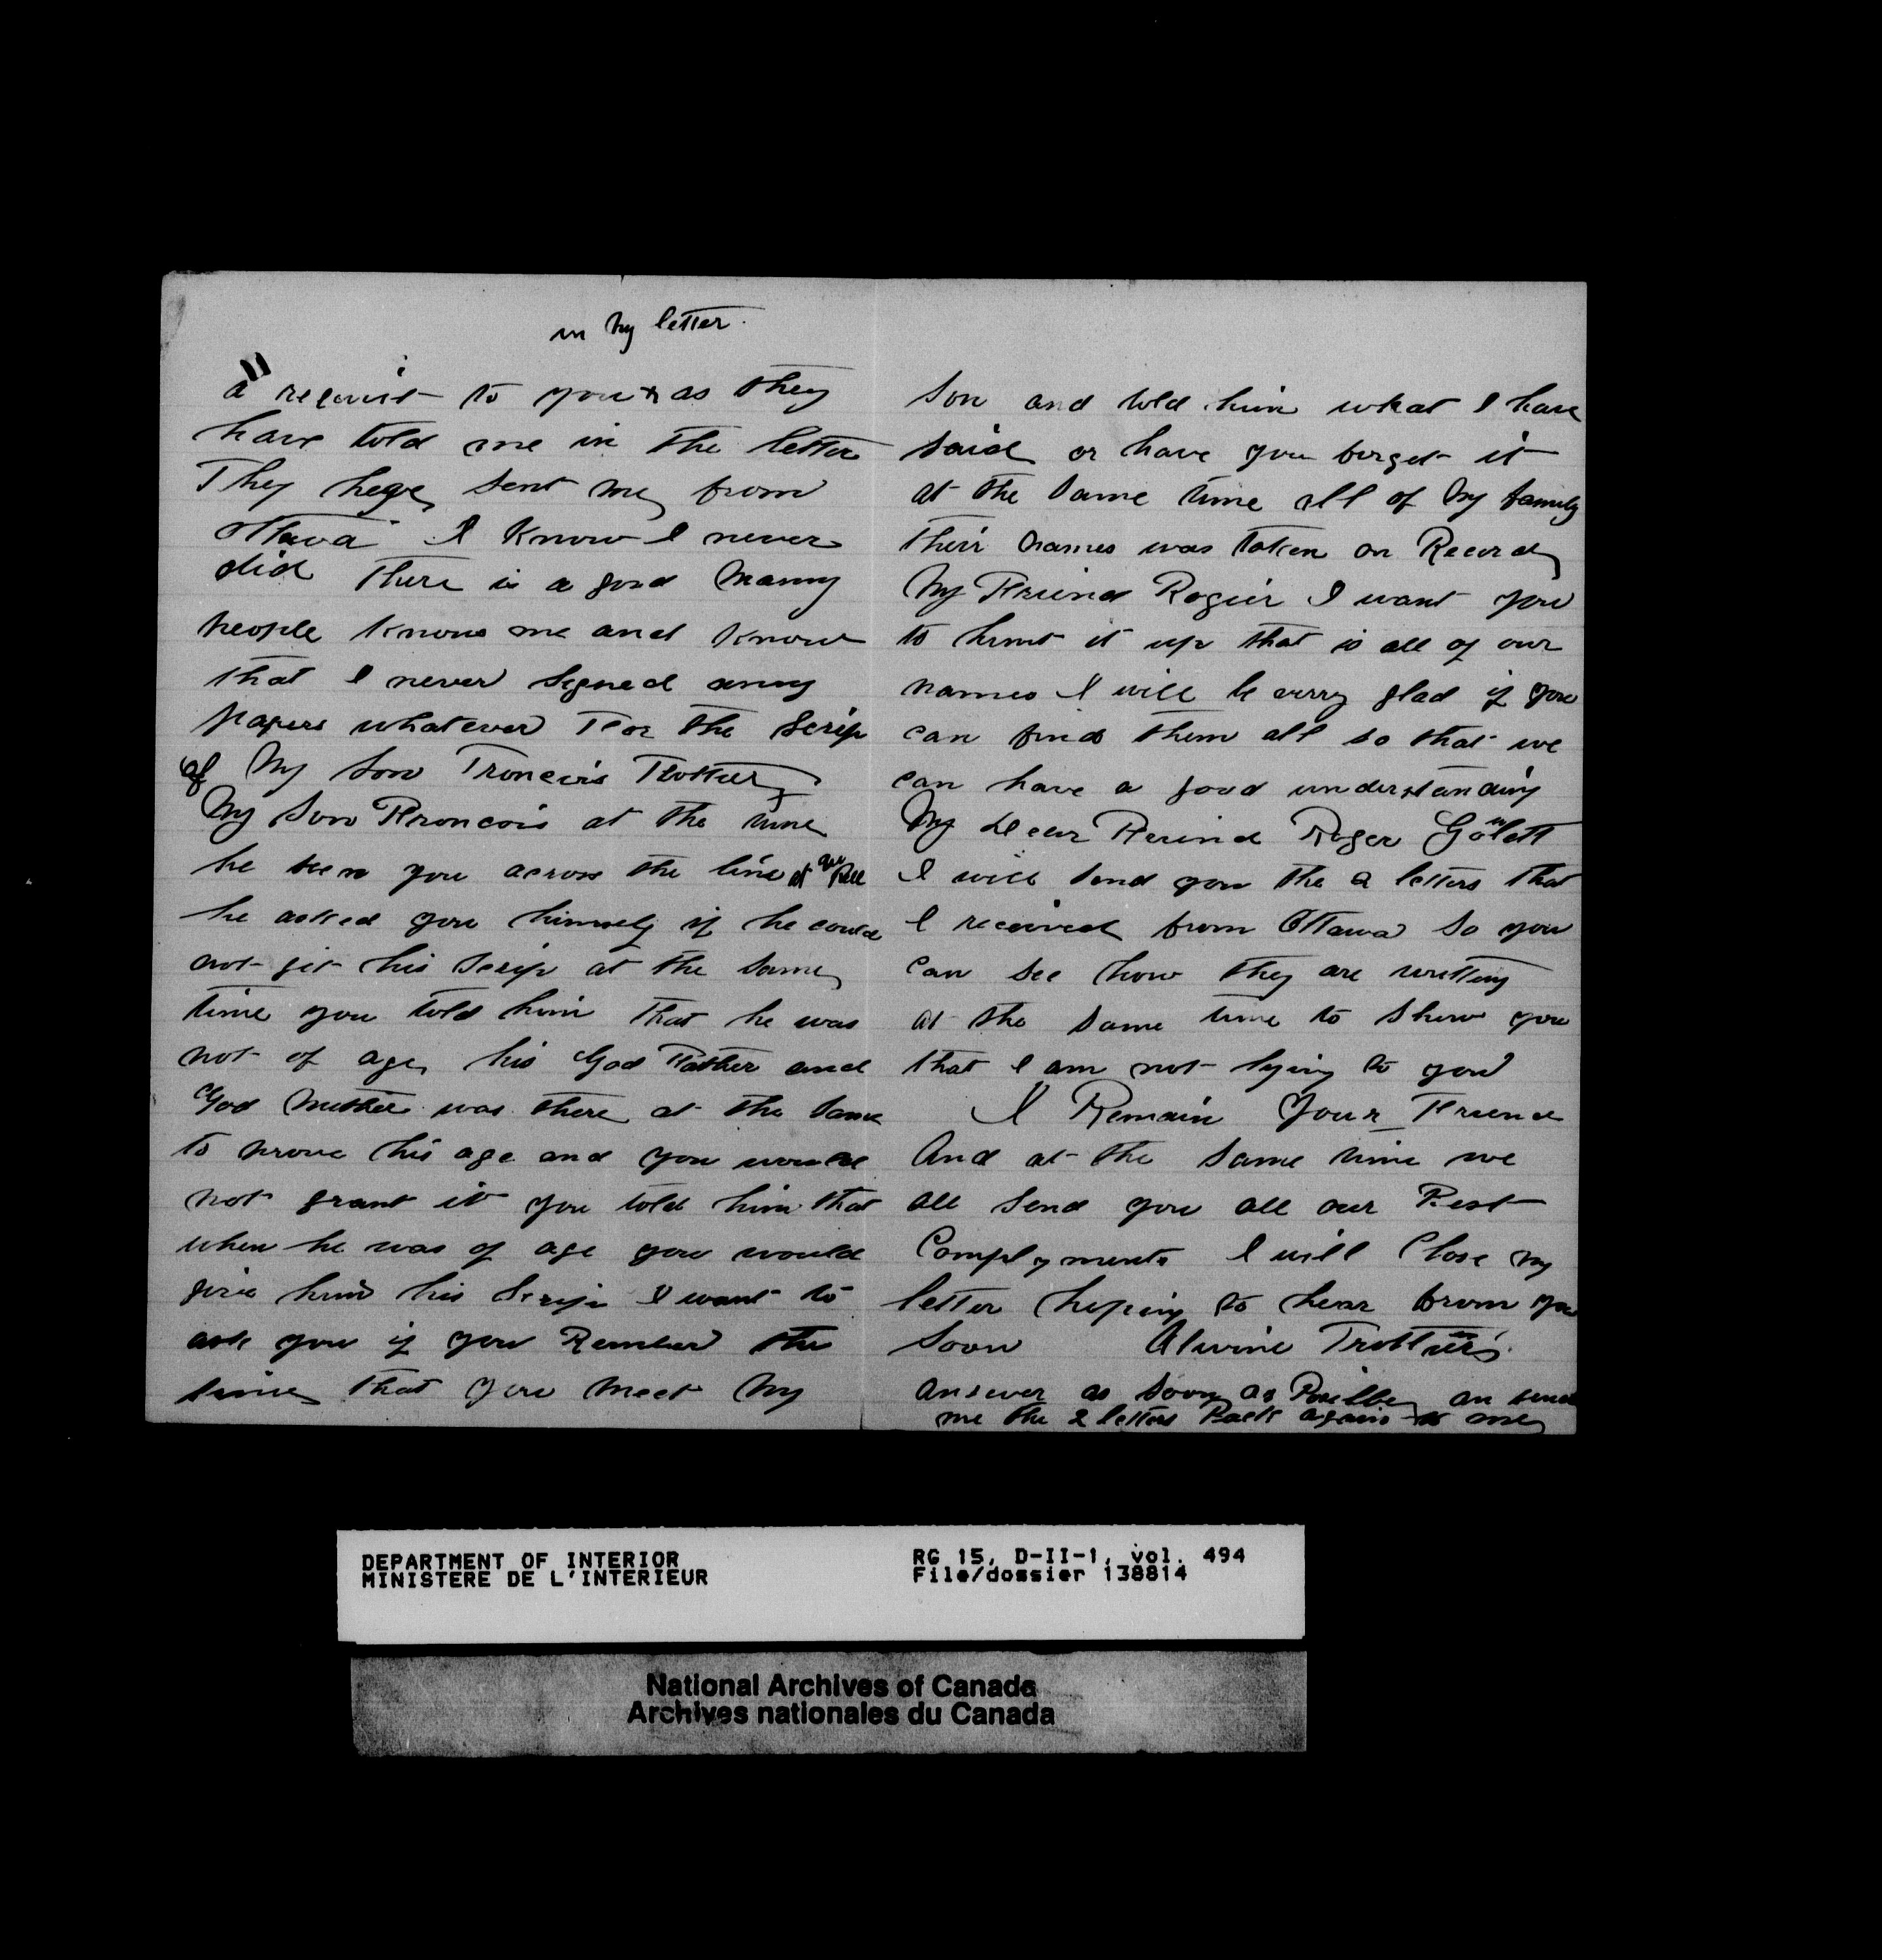 in My letter.
a requist to you as they
have told me in the letter
They have sent me from
Ottawa I Know I never
did There is a good Manny
People Knows me and Know
that I never Segned anny
Papers whatever For the Scrip
of My Son Froncois Trottier
My Son Froncois at the time
he seen you across the line at Bell
he asked you himself if he could
not git his Scrip at the same
time you told him that he was
not of age, his God Father and
God Mother was there at the same
to Prove his age and you would
not grant it you told him that
when he was of age you would
give him his Scrip I want to
ask you if you Rember the
time that you Meet My
Son and told him what I have
said or have you forget it
at the same time all of My family
their Names was taken on Record
My Friend Rogier I want you
to hunt it up that is all of our
names I will be verry glad if you
can find them all so that we
can have a good understanding
My Dear Freind Roger Goulett
I will send you the 2 letters that
I received from Ottawa So you
can see how they are writting
at the same time to Show you
that I am not lying to you
I Remain Your Friend
And at the same time we
all Send you all our Best
Complyments I will Close my
letter hoping to hear from you
Soon Alwine Trottier
answer as soon as Posilbe an send
me the 2 letters Back again to me
DEPARTMENT OF INTERIOR
MINISTERE DE L'INTERIEUR
RG 15, D-II-1, vol. 494
File/dossier 138814
National Archives of Canada
Archives nationales du Canada